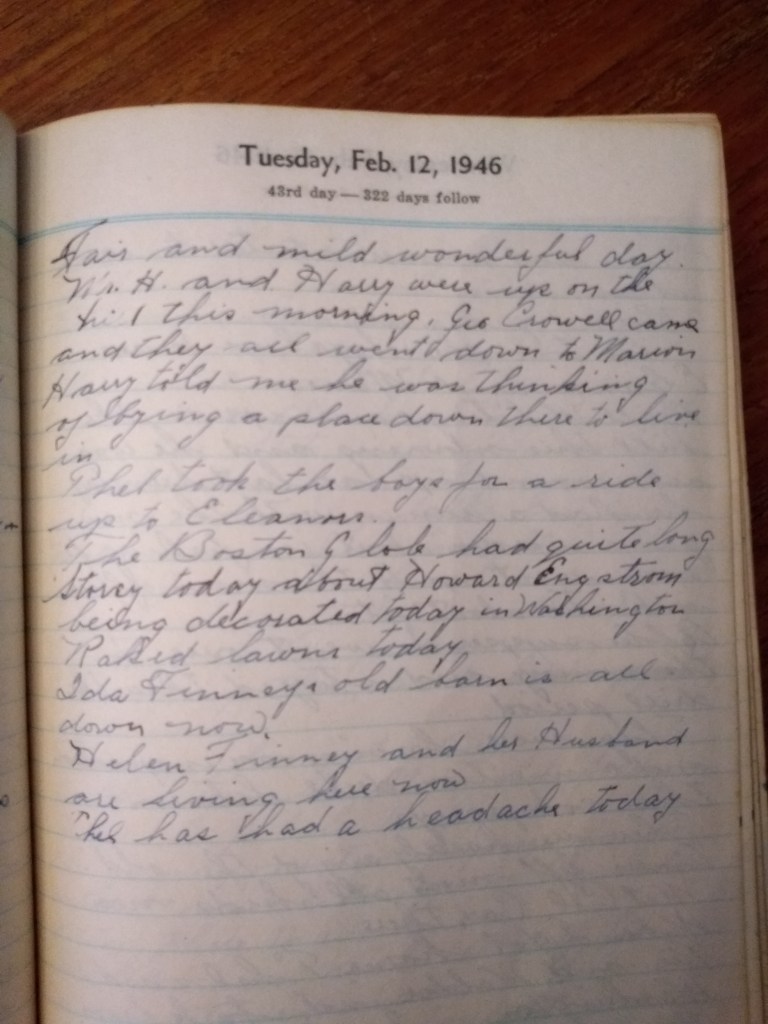 Tuesday, Feb. 12, 1946
43rd day — 322 days follow
Fair and mild wonderful day.
Mr. H. and Harry were up on the
hill this morning. Geo Crowell came
and they all went down to Marion
Harry told me he was thinking
of bying a place down there to live
in
Phel took the boys for a ride
up to Eleanors.
The Boston Globe had quite long
storey today about Howard Engstrom
being decorated today in Washington
Raked lawns today
Ida Finneys old barn is all
down now.
Helen Finney and her Husband
are living here now
Phel has had a headache today